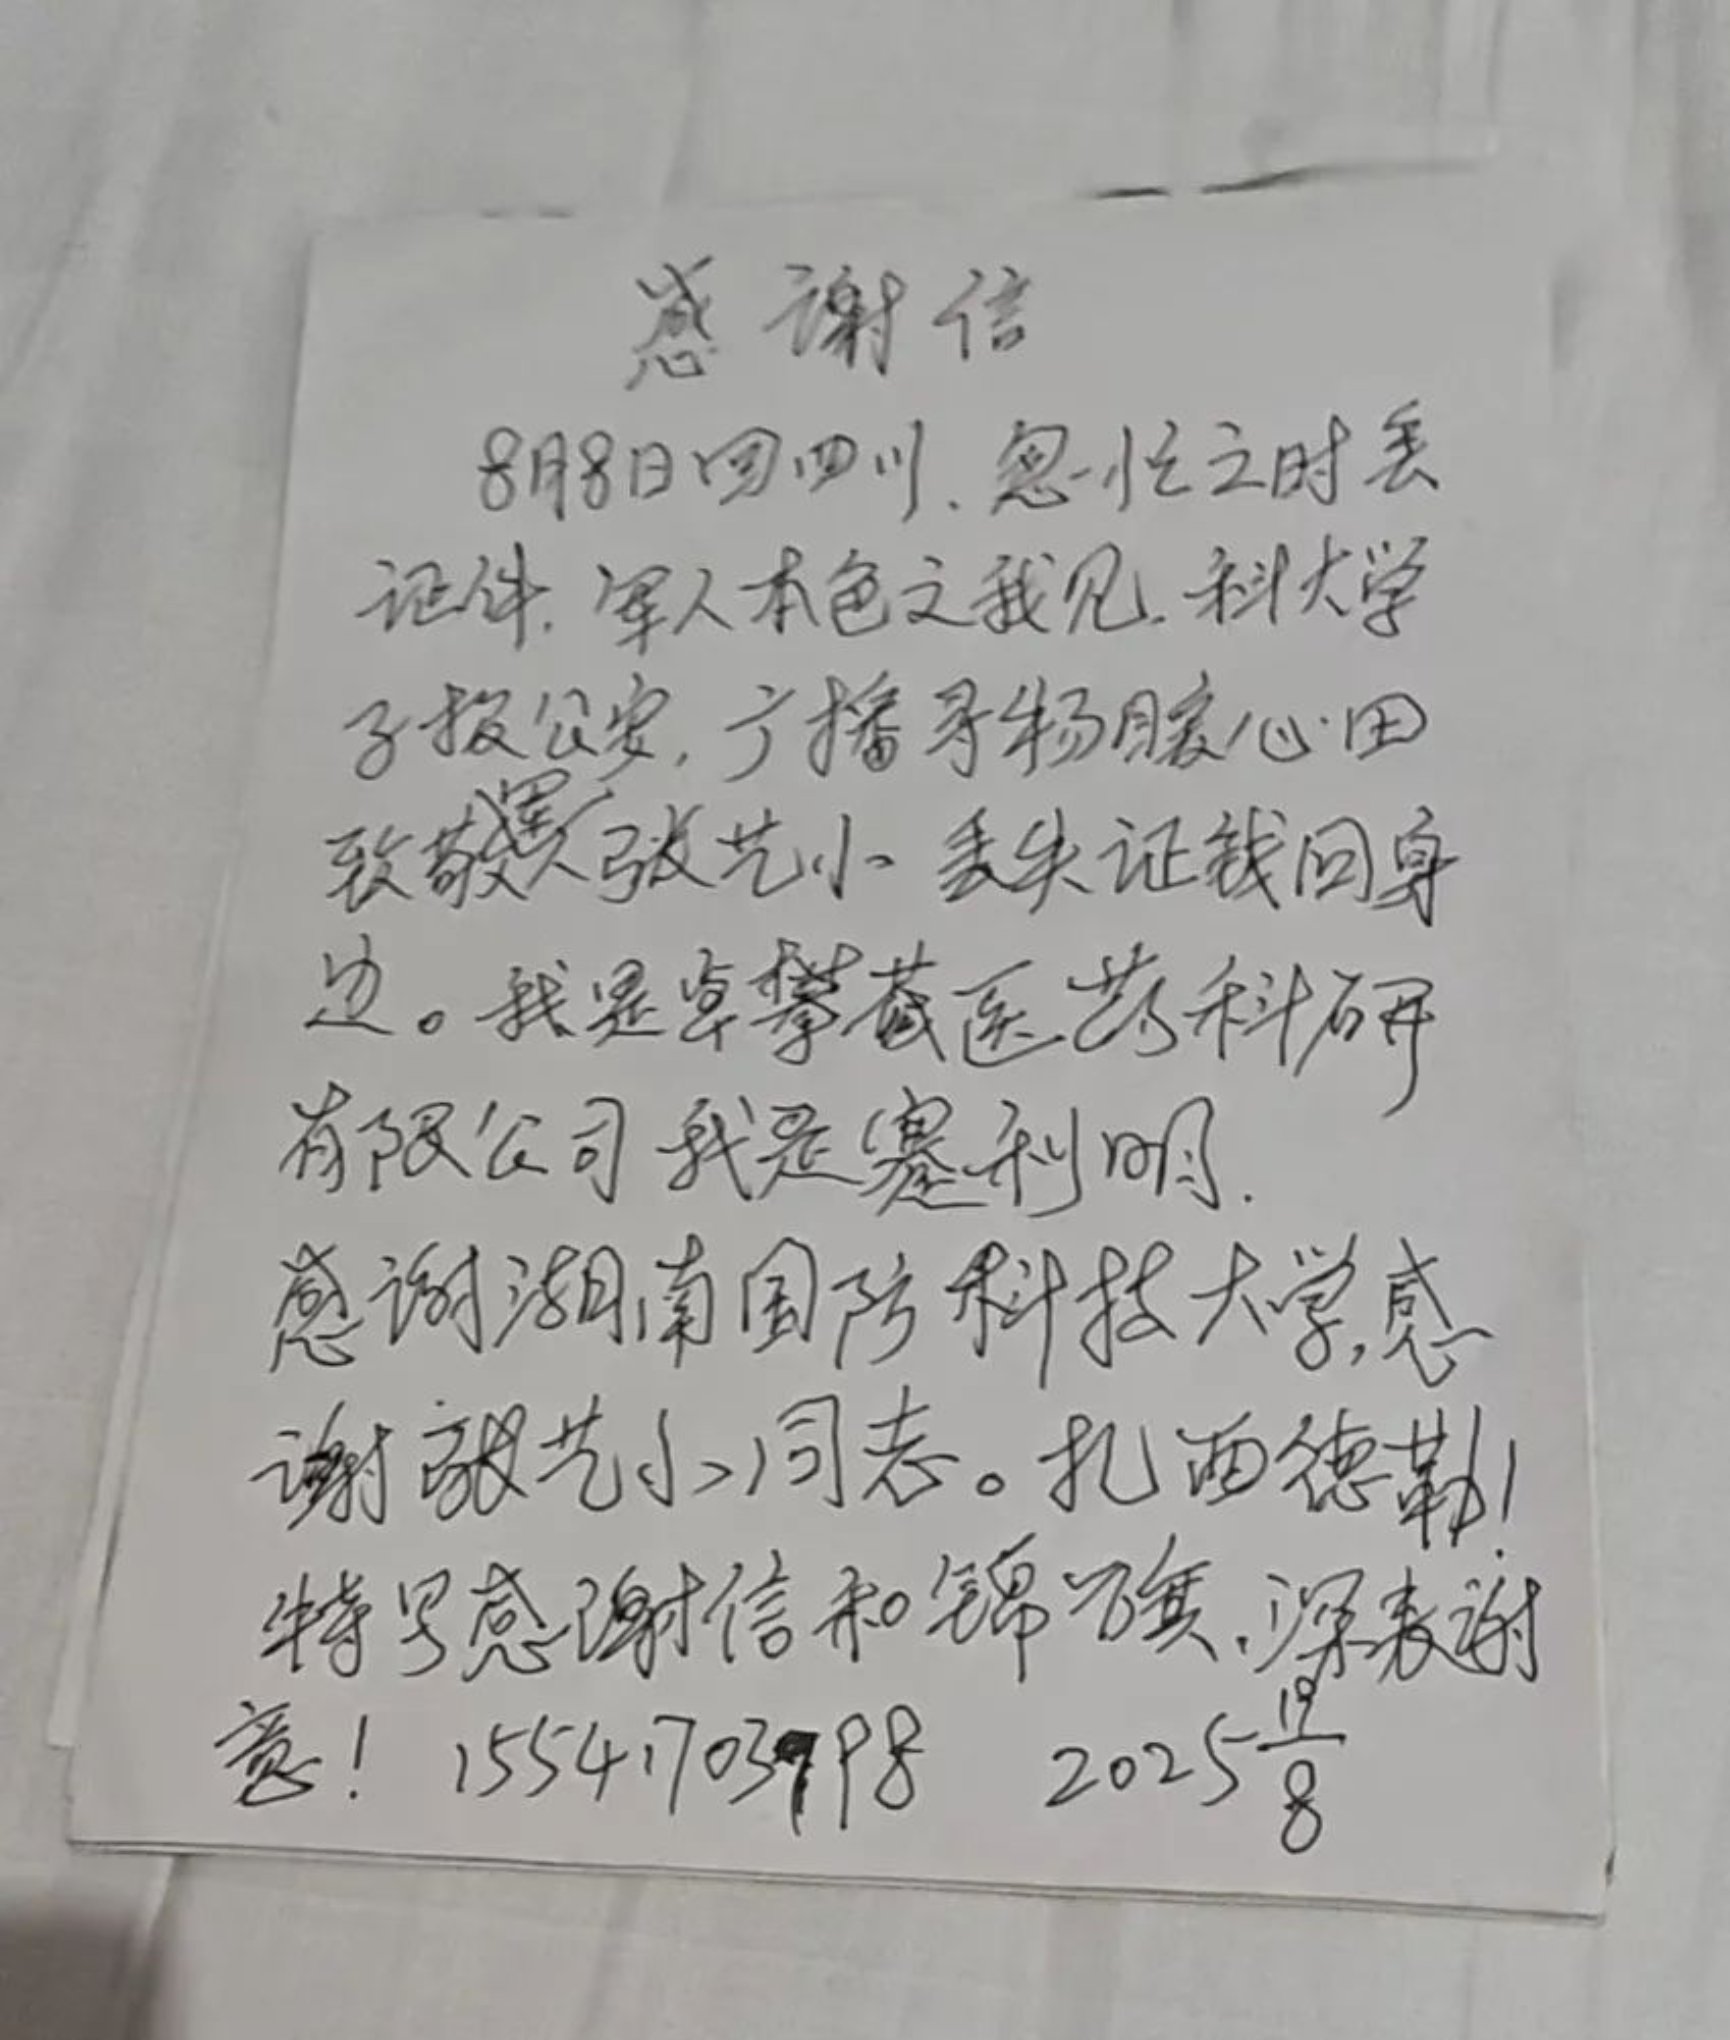 感谢信
8月8日回四川、忽忙之时丢
证件.军人本色文我见.科大学
子报公安,广播寻物暖心田
致敬军人张艺小 丢失证钱回身
边。我是卓攀藏医药科研
有限公司我是蹇利明.
感谢湖南国防科技大学,感
谢张艺小同志。扎西德勒!
特写感谢信和锦旗、深表谢
意! 15541703998 2025 19/8